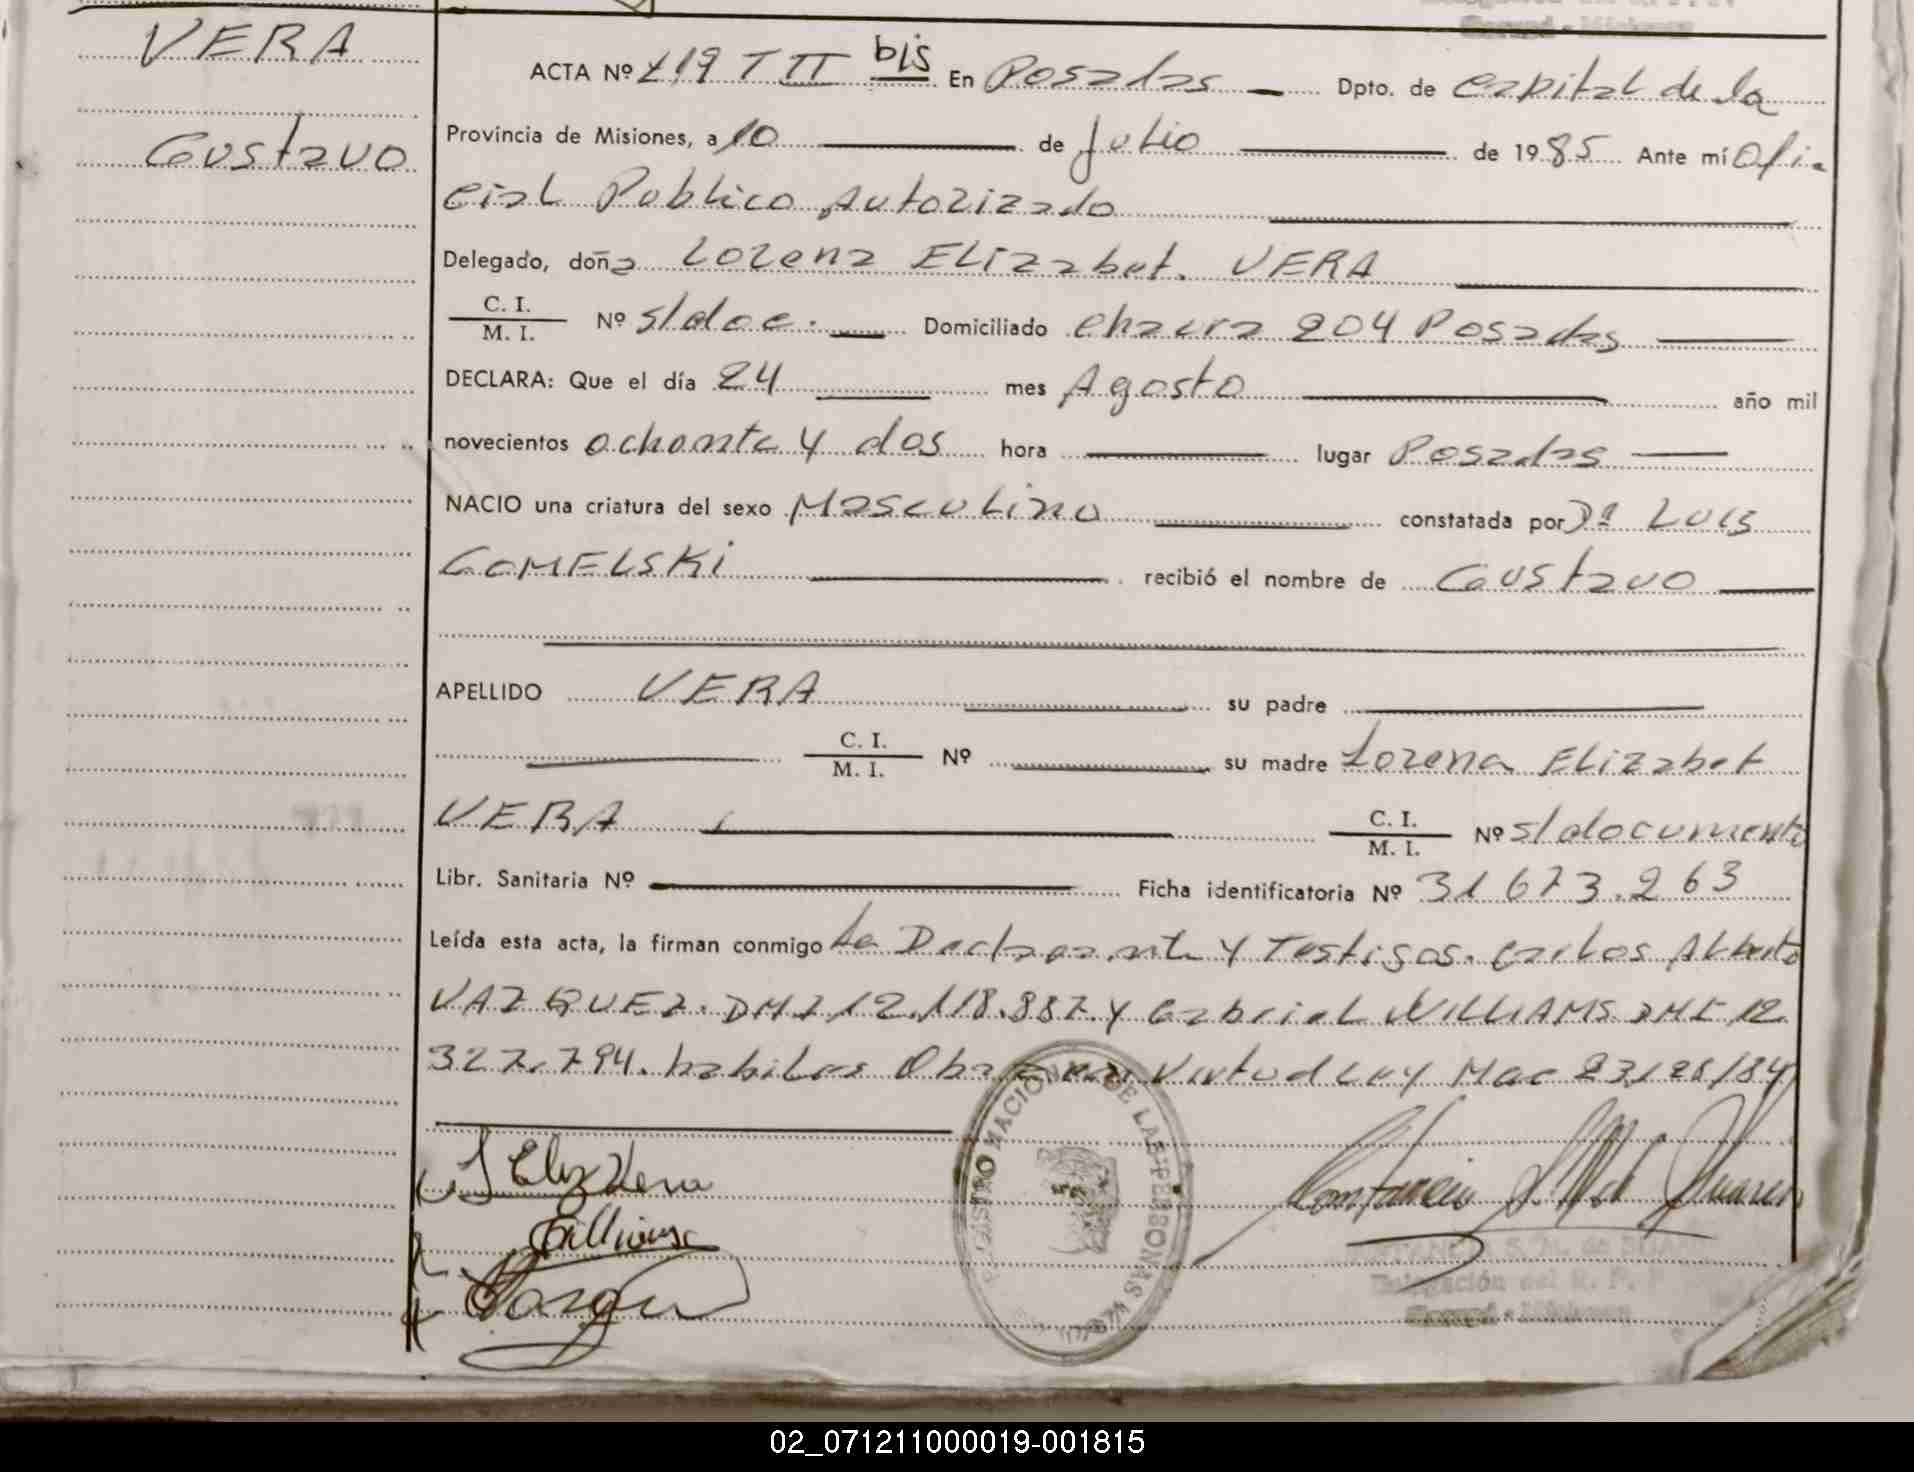 VERA
Gustavo
ACTA Nº 119 T II bis En Posadas Dpto. de Capital de la
Provincia de Misiones, a 10 de Julio de 1985 Ante mí Ofi-
cial Publico Autorizado
Delegado, doña Lorena Elizabet. VERA
C. I.
M. I. Nº s/doc. Domiciliado chacra 204 Posadas
DECLARA: Que el día 24 mes Agosto año mil
novecientos ochenta y dos hora lugar Posadas
NACIO una criatura del sexo Masculino constatada por Dª Luis
GOMELSKI recibió el nombre de Gustavo
APELLIDO VERA su padre
C. I.
M. I. Nº su madre Lorena Elizabet
VERA C. I.
M. I. Nº s/documento
Libr. Sanitaria Nº Ficha identificatoria Nº 31673.263
Leída esta acta, la firman conmigo La Declarante y Testigos. Carlos Alberto
VAZQUEZ. DMI 12.118.887. y Gabriel WILLIAMS DMI 12.
327.794. habiles Virtud Ley Nac 23/28/84
Eliz Vera
REGISTRO DE LAS PERSONAS
Delegación del R. P.
02_071211000019-001815